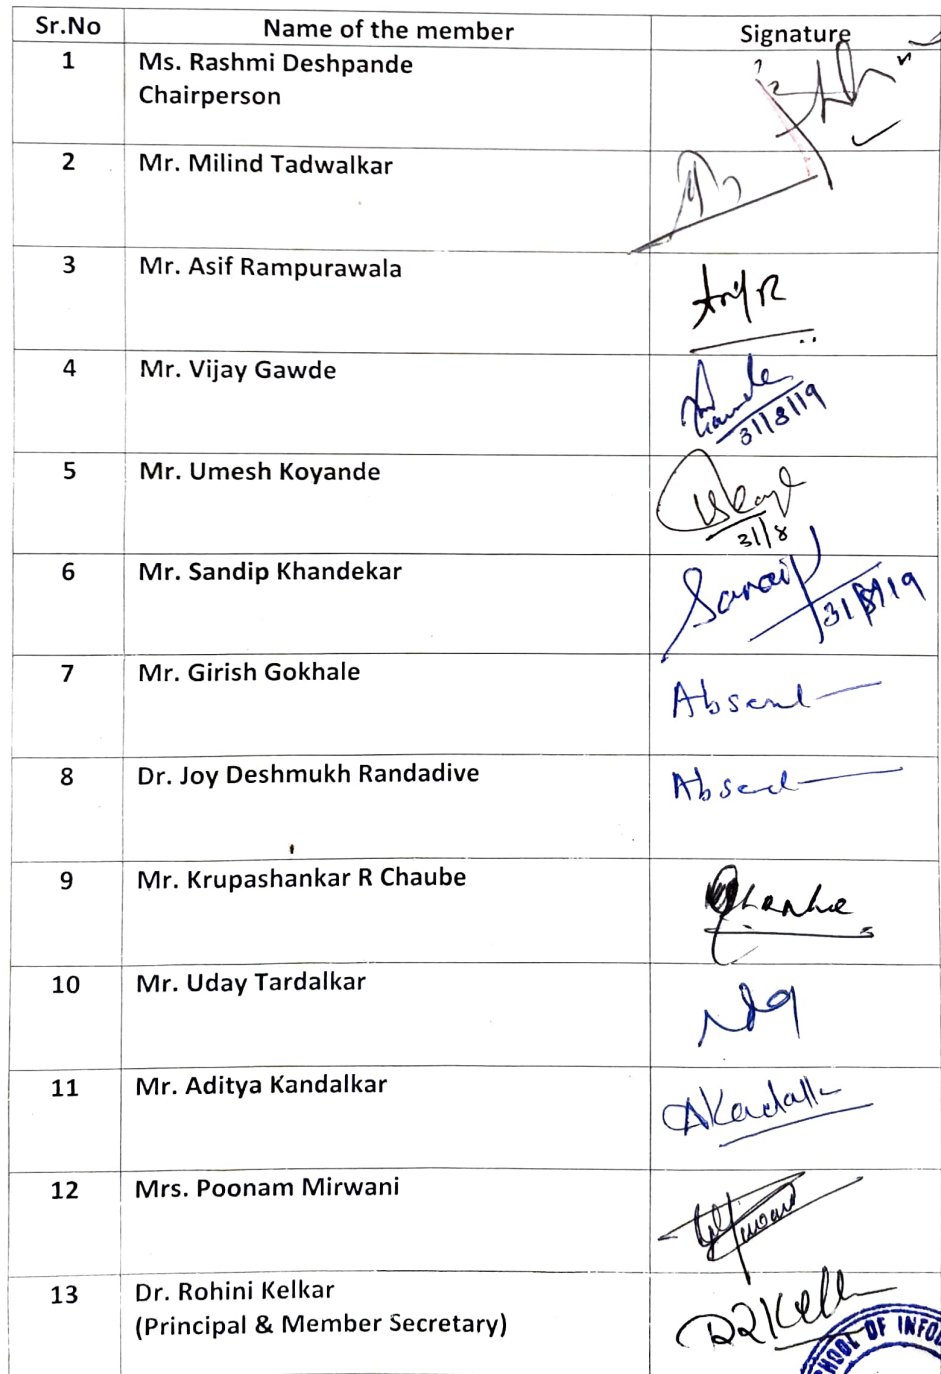 Sr.No Name of the member Signature
1 Ms. Rashmi Deshpande
Chairperson
2 Mr. Milind Tadwalkar
3 Mr. Asif Rampurawala
Asif R
4 Mr. Vijay Gawde
31/8/19
5 Mr. Umesh Koyande
31/8
6 Mr. Sandip Khandekar
Sandip
31/8/19
7 Mr. Girish Gokhale
Absent
8 Dr. Joy Deshmukh Randadive
Absent
9 Mr. Krupashankar R Chaube
10 Mr. Uday Tardalkar
11 Mr. Aditya Kandalkar
12 Mrs. Poonam Mirwani
13 Dr. Rohini Kelkar
(Principal & Member Secretary)
OF